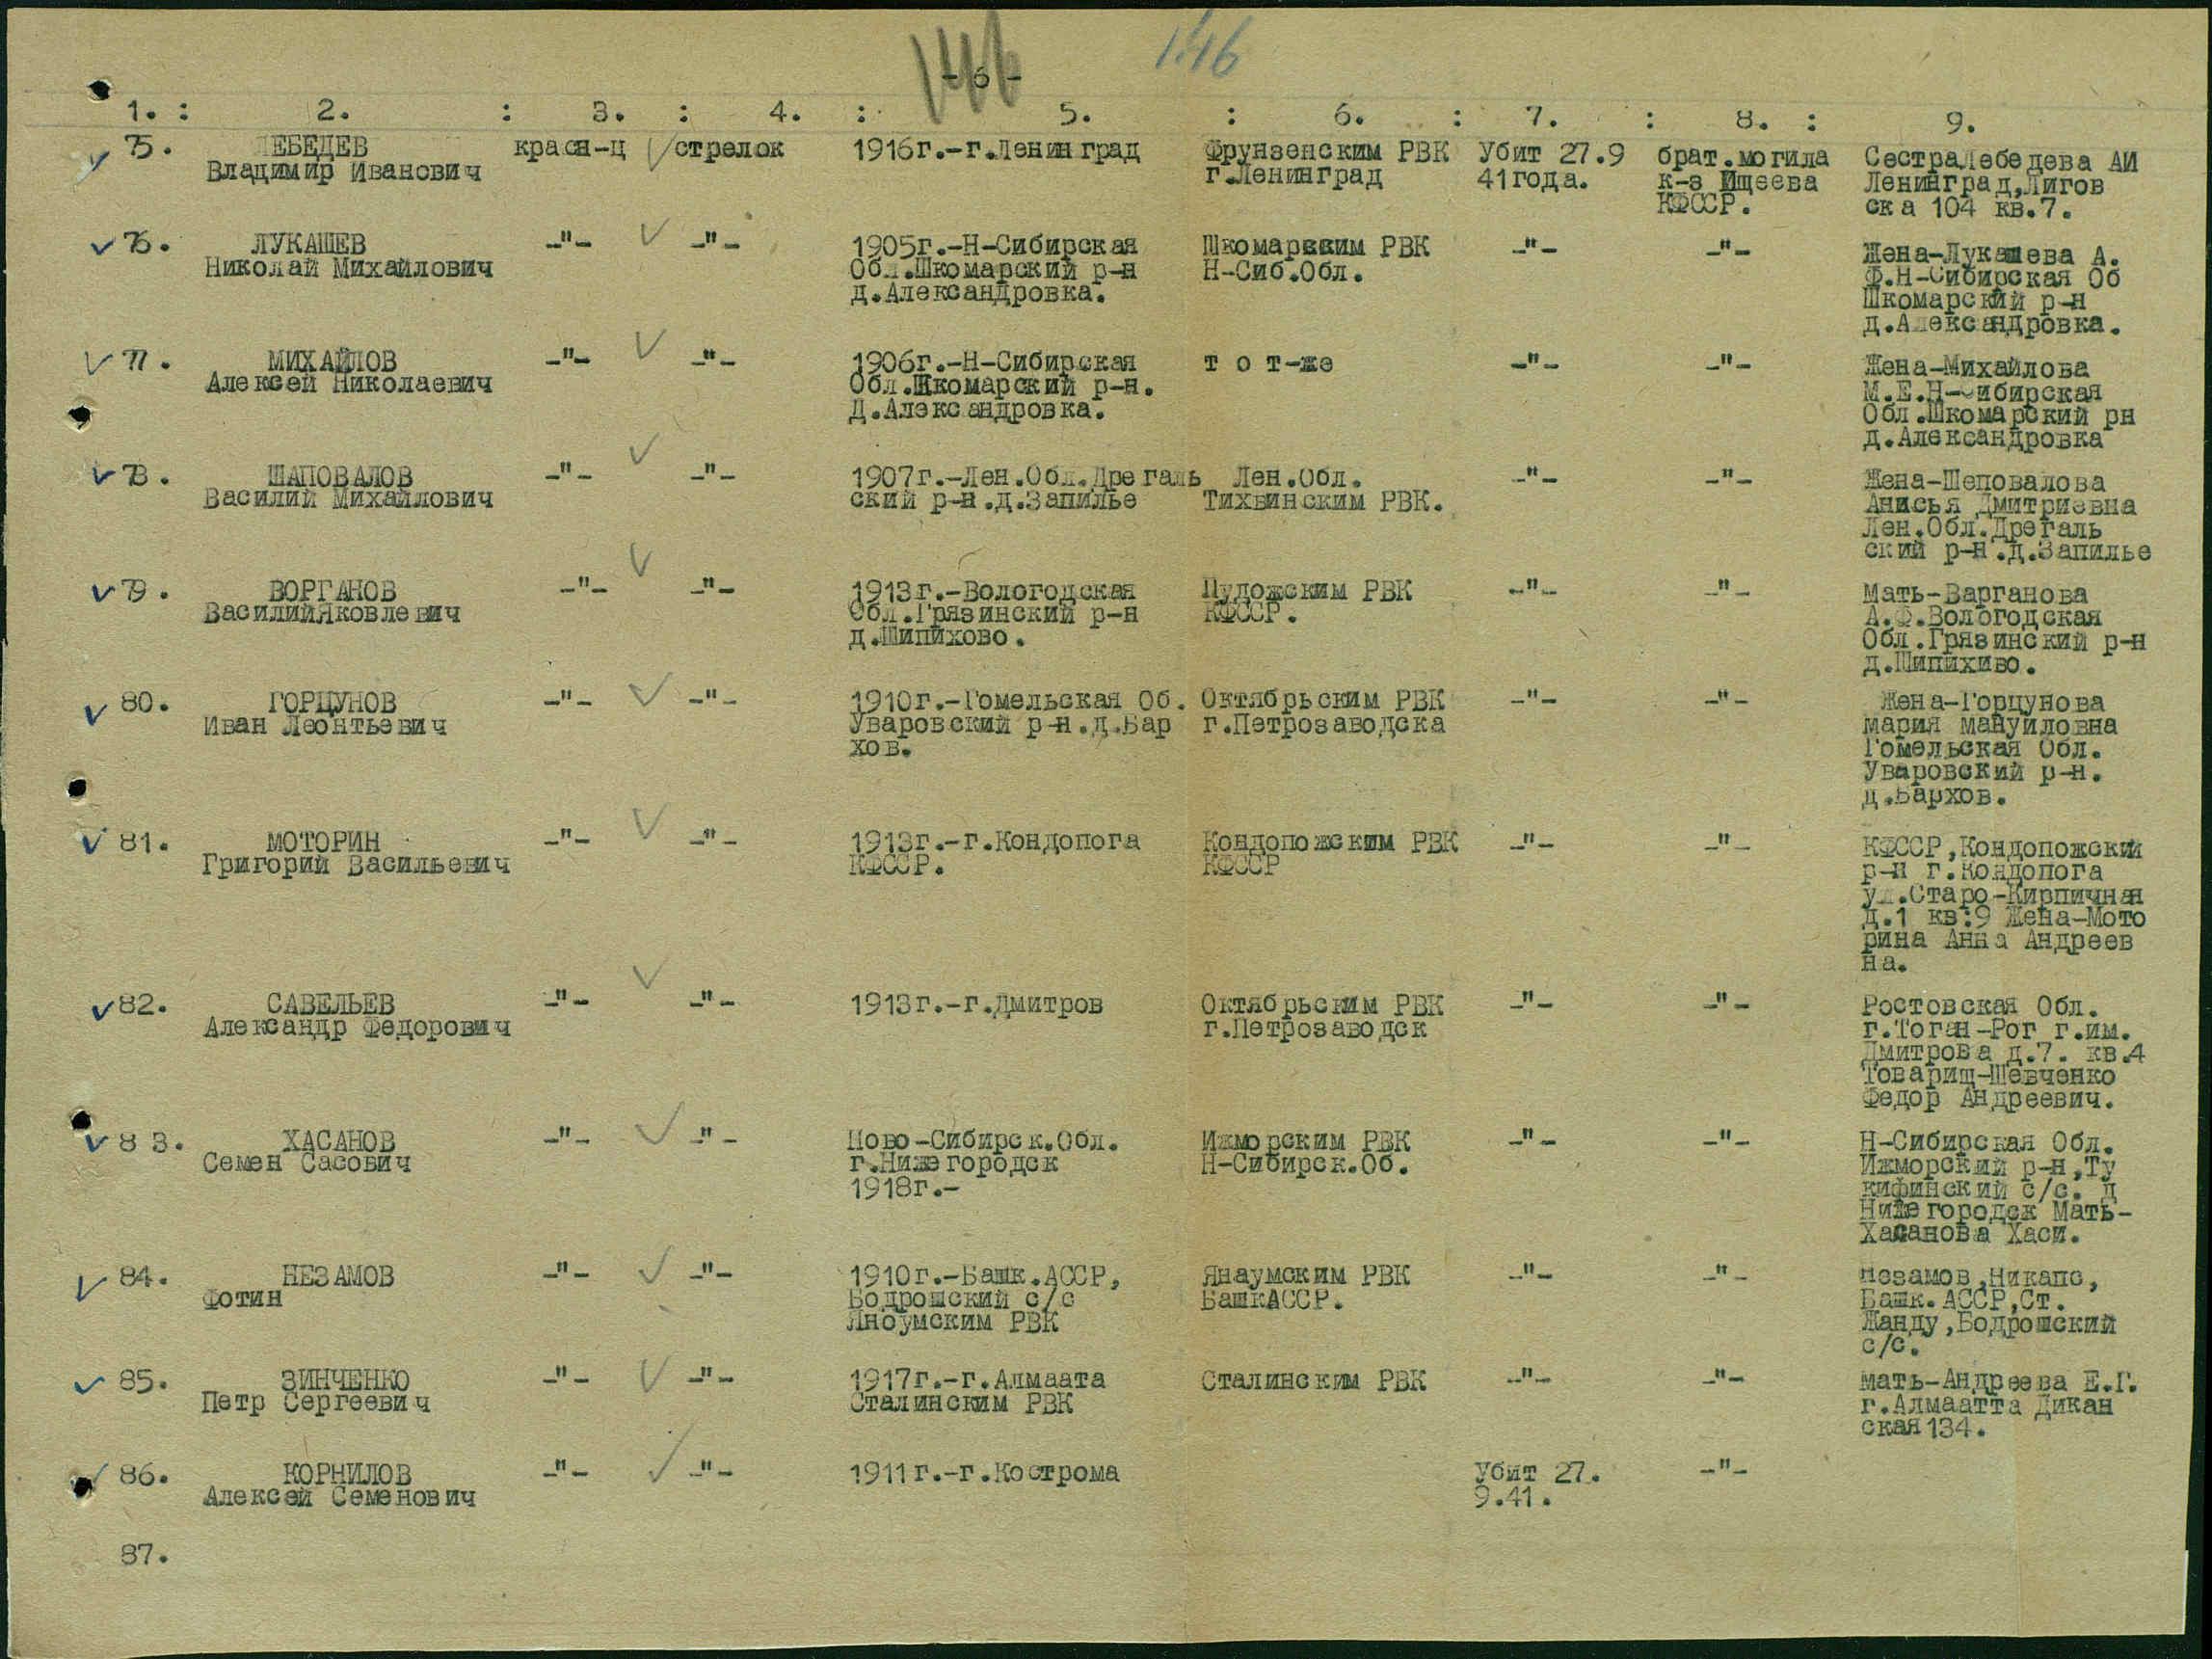 146
146
- 6 -
1. : 2. : 3. : 4. : 5. : 6. : 7. : 8. : 9.
75. ЛЕБЕДЕВ красн-ц стрелок 1916г.-г.Ленинград Фрунзенским РВК Убит 27.9 брат.могила СестраЛебедева АИ
Владимир Иванович г.Ленинград 41года. к-з Ищеева Ленинград,Лигов
КФССР. ска 104 кв.7.
76. ЛУКАШЕВ -"- -"- 1905г.-Н-Сибирская Шкомарским РВК -"- -"- Жена-Лукашева А.
Николай Михайлович Обл.Шкомарский р-н Н-Сиб.Обл. Ф.Н-Сибирская Об
д.Александровка. Шкомарский р-н
д.Александровка.
77. МИХАЙЛОВ -"- -"- 1906г.-Н-Сибирская т о т-же -"- -"- Жена-Михайлова
Алексей Николаевич Обл.Шкомарский р-н. М.Е.Н-Сибирская
Д.Александровка. Обл.Шкомарский рн
д.Александровка
78. ШАПОВАЛОВ -"- -"- 1907г.-Лен.Обл.Дрегаль Лен.Обл. -"- -"- Жена-Шеповалова
Василий Михайлович ский р-н.д.Запилье Тихвинским РВК. Анисья Дмитриевна
Лен.Обл.Дрегаль
ский р-н.д.Запилье
79. ВОРГАНОВ -"- -"- 1913г.-Вологодская Пудожским РВК -"- -"- Мать-Варганова
ВасилийЯковлевич Обл.Грязинский р-н КФССР. А.Ф.Вологодская
д.Шипихово. Обл.Грязинский р-н
д.Шипихиво.
80. ГОРЦУНОВ -"- -"- 1910г.-Гомельская Об. Октябрьским РВК -"- -"- Жена-Горцунова
Иван Леонтьевич Уваровский р-н.д.Бар г.Петрозаводска мария мануиловна
хов. Гомельская Обл.
Уваровский р-н.
д.Бархов.
81. МОТОРИН -"- -"- 1913г.-г.Кондопога Кондопожским РВК -"- -"- КФССР,Кондопожский
Григорий Васильевич КФССР. КФССР р-н г.Кондопога
ул.Старо-Кирпичная
д.1 кв:9 Жена-Мото
рина Анна Андреев
на.
82. САВЕЛЬЕВ -"- -"- 1913г.-г.Дмитров Октябрьским РВК -"- -"- Ростовская Обл.
Александр Федорович г.Петрозаводск г.Тоган-Рог г.им.
Дмитрова д.7. кв.4
Товарищ-Шевченко
Федор Андреевич.
83. ХАСАНОВ -"- -"- Ново-Сибирск.Обл. Ижморским РВК -"- -"- Н-Сибирская Обл.
Семен Сасович г.Нижегородск Н-Сибирск.Об. Ижморский р-н,Ту
1918г.- кифинский с/с. д
Нижегородск Мать-
Хасанова Хаси.
84. НЕЗАМОВ -"- -"- 1910г.-Башк.АССР, Янаумским РВК -"- -"- Незамов,Никапс,
Фотин Бодрошский с/с БашкАССР. Башк.АССР,Ст.
Яноумским РВК Жанду,Бодрошский
с/с.
85. ЗИНЧЕНКО -"- -"- 1917г.-г.Алмаата Сталинским РВК -"- -"- мать-Андреева Е.Г.
Петр Сергеевич Сталинским РВК г.Алмаатта Дикан
ская134.
86. КОРНИЛОВ -"- -"- 1911г.-г.Кострома Убит 27. -"-
Алексей Семенович 9.41.
87.